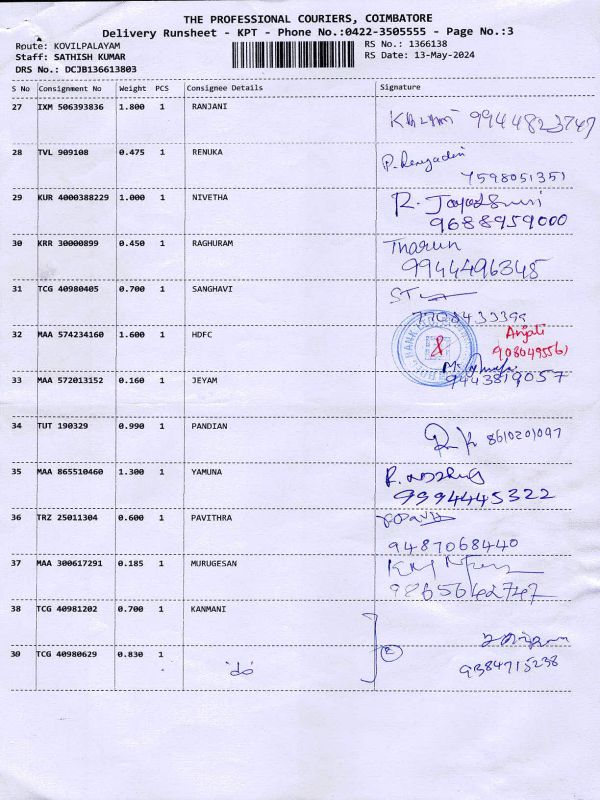 THE PROFESSIONAL COURIERS, COIMBATORE
Delivery Runsheet - KPT - Phone No.:0422-3505555 - Page No.:3
Route: KOVILPALAYAM RS No.: 1366138
Staff: SATHISH KUMAR RS Date: 13-May-2024
DRS No.: DCJB136613803
S No Consignment No Weight PCS Consignee Details Signature
27 IXM 506393836 1.800 1 RANJANI
9944823747
28 TVL 909108 0.475 1 RENUKA
7598051351
29 KUR 4000388229 1.000 1 NIVETHA R.
9688959000
30 KRR 30000899 0.450 1 RAGHURAM Tharun
9944496348
31 TCG 40980405 0.700 1 SANGHAVI
7708433399
32 MAA 574234160 1.600 1 HDFC Anjali
908049556
33 MAA 572013152 0.160 1 JEYAM 9443819057
34 TUT 190329 0.990 1 PANDIAN 8610201097
35 MAA 865510460 1.300 1 YAMUNA
9994445322
36 TRZ 25011304 0.600 1 PAVITHRA
9487068440
37 MAA 300617291 0.185 1 MURUGESAN
9865642747
38 TCG 40981202 0.700 1 KANMANI
39 TCG 40980629 0.830 1 "do" 2
9384715238